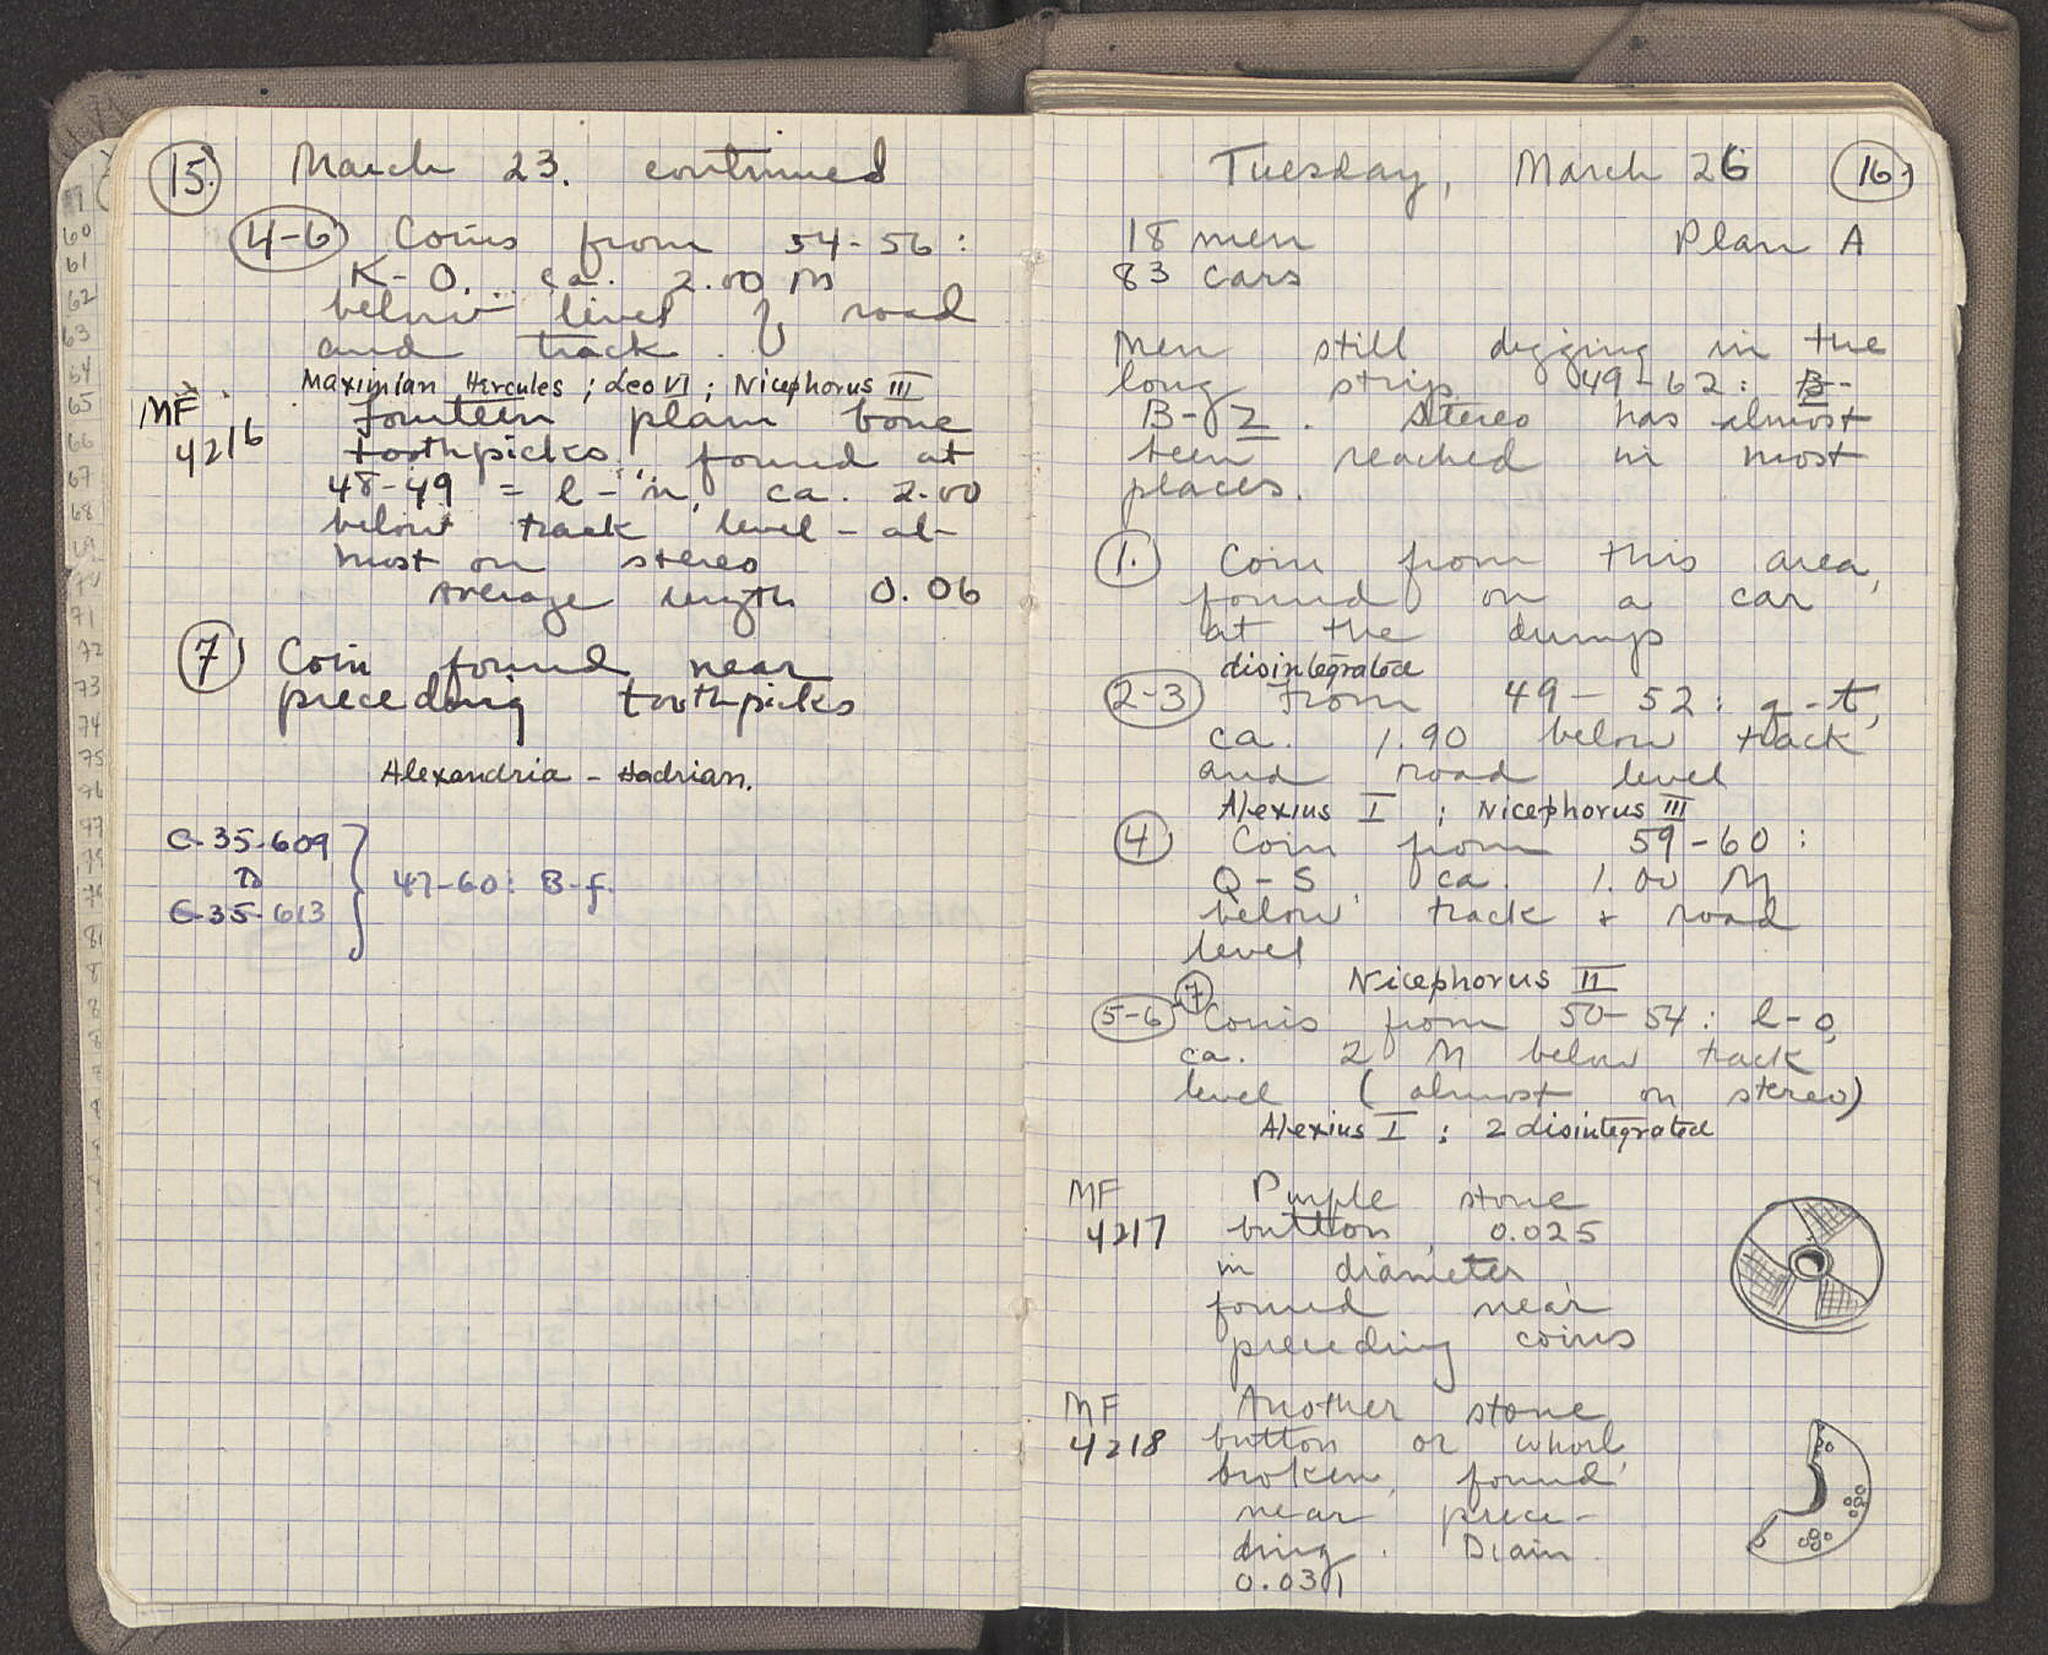 15. March 23. continued
4-6 Coins from 54-56:
K-O, ca. 2.00 M
below level of road
and track.
Maximian Hercules; Leo VI; Nicephorus III
MF
4216
Fourteen plain bone
"toothpicks" found at
48-49 = l-n, ca. 2.00
below track level - al-
most on stereo
average length 0.06
7 Coin found near
preceding toothpicks
Alexandria - Hadrian.
C-35-609
to
C-35-613
47-60: B-f.
Tuesday, March 26 16
18 men Plan A
83 cars
Men still digging in the
long strip 49-62: B-
B-Z. Stereo has almost
been reached in most
places.
1. Coin from this area,
found on a car
at the dump
disintegrated
2-3 From 49-52: q-t,
ca. 1.90 below track
and road level
Alexius I; Nicephorus III
4 Coin from 59-60:
Q-S, ca. 1.00 M
below track + road
level
Nicephorus II
5-6 7 Coins from 50-54: l-o,
ca. 2 M below track
level (almost on stereo)
Alexius I; 2 disintegrated
MF
4217
Purple stone
button, 0.025
in diameter,
found near
preceding coins
MF
4218
Another stone
button or whorl,
broken, found
near prece-
ding. Diam.
0.031